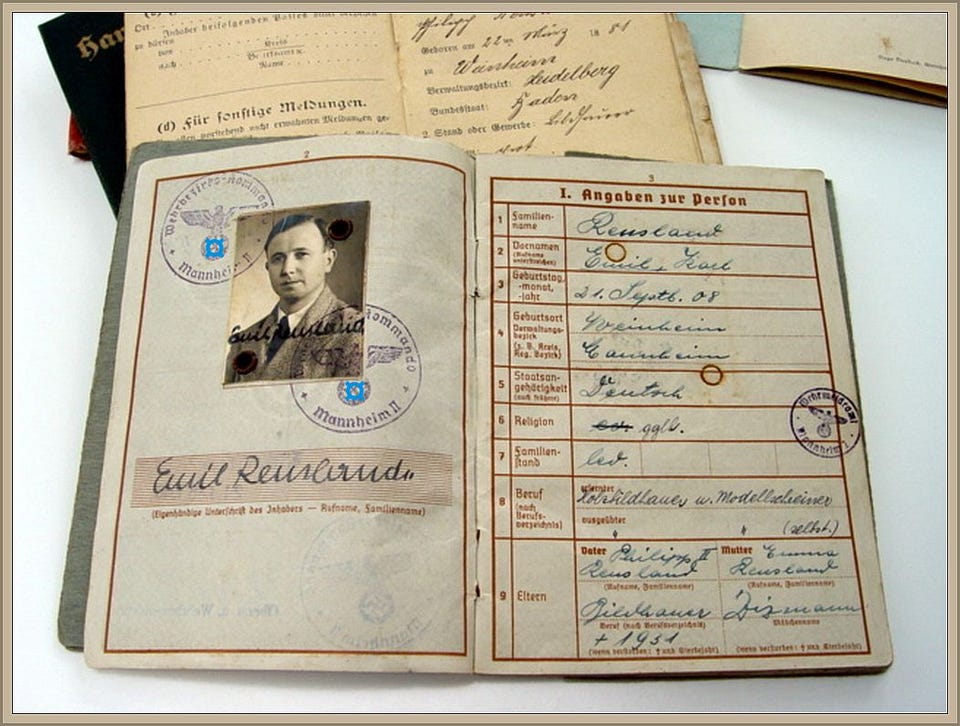 Ort
Inhaber beifolgenden Passes
zu dürfen
von
nach
Kreis
Name
(d) Für sonstige Meldungen.
Philipp
Geboren am 22ten März 1881
zu Weinheim
Verwaltungsbezirk: Heidelberg
Bundesstaat: Baden
2. Stand oder Gewerbe: Bildhauer
2
Wehrbezirks-Kommando
Mannheim II
Emil Rensland
Kommando
Mannheim II
Emil Rensland
(Eigenhändige Unterschrift des Inhabers — Rufname, Familienname)
3
I. Angaben zur Person
1 Familien-
name
Rensland
2 Vornamen
(Rufname
unterstreichen)
Emil, Karl
3 Geburtstag,
-monat,
-jahr
21. Septb. 08
4 Geburtsort
Verwaltungs-
bezirk
(z. B. Kreis,
Reg. Bezirk)
Weinheim
Mannheim
5 Staatsan-
gehörigkeit
(auch frühere)
Deutsch
6 Religion
ev. gglb.
7 Familien-
stand
led.
8 Beruf
(nach
Berufs-
verzeichnis)
erlernter
Holzbildhauer u. Modellschreiner
ausgeübter
" " (selbst.)
9 Eltern
Vater Philipp II
Rensland
(Rufname, Familienname)
Bildhauer
Beruf (nach Berufsverzeichnis)
† 1931
(wenn verstorben: † und Sterbejahr)
Mutter Emma
Rensland
(Rufname, Familienname)
Dizmann
Mädchenname
(wenn verstorben: † und Sterbejahr)
Wehrmeldeamt